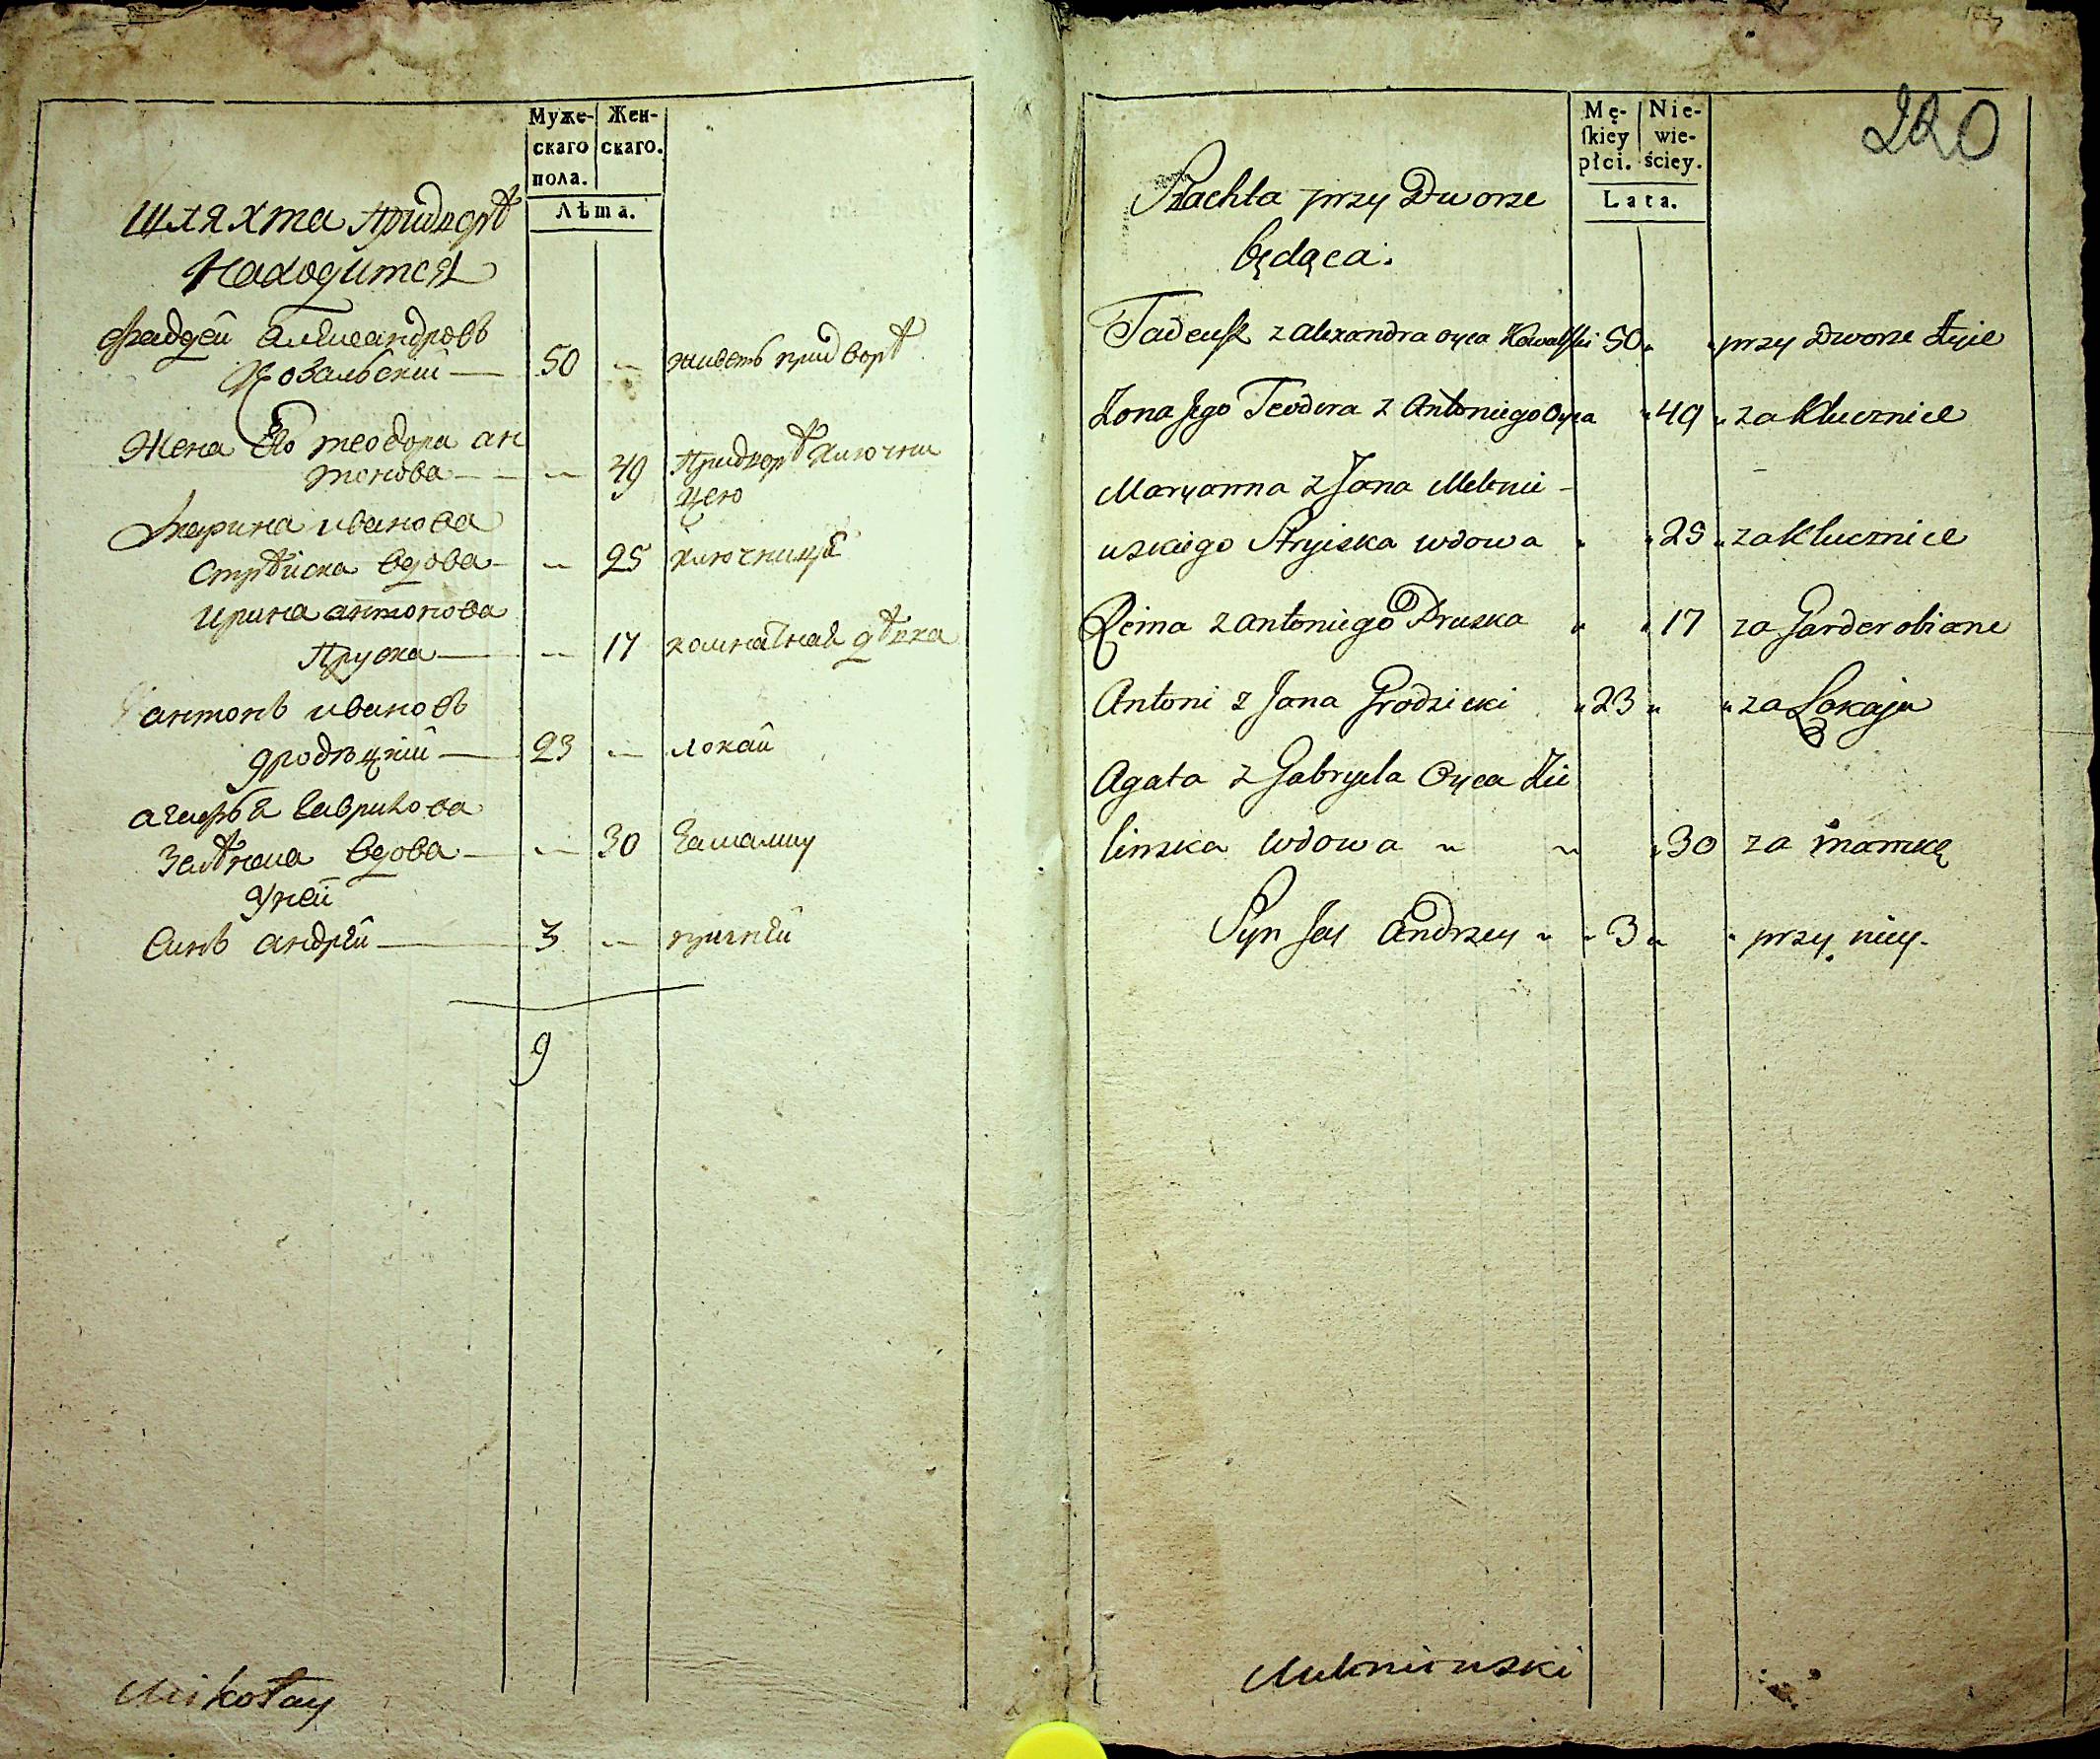 Муже-
скаго
пола.
Жен-
скаго.
Лѣта.
Шляхта придворѣ
Находится
Фаддей Александровъ
Ковальскій — 50 — живетъ придворѣ
Жена Его теодора ан
тонова — — 49 Придворѣ ключни
цею
Марина иванова
Стрѣйска вдова — — 25 ключницей
Ирина антонова
Пруска — — 17 комнатная дѣвка
антонъ ивановъ
гродзѣцкій — 23 — локай
агафья Гаврилова
Зелѣнска вдова — — 30 замамку
Уней
Синъ андрей — 3 — приней
9
Mikołay
220
Mę-
skiey
płci.
Nie-
wie-
ściey.
Lata.
Szlachta przy Dworze
będąca.
Tadeusz z alexandra oyca Kowalski 50 przy Dworze żyie
Żona Jego Teodora z Antoniego Oyca 49 za Klucznice
Maryanna z Jana Melenie-
wskiego Stryiska wdowa 25 za Klucznice
Reina z antoniego Pruska 17 za Garderobiane
Antoni z Jana Grodzicki 23 za Lokaja
Agata z Gabryela Oyca Zie
linska wdowa 30 za mamkę
Syn Jey Andrzey 3 przy niey.
Meleniewski